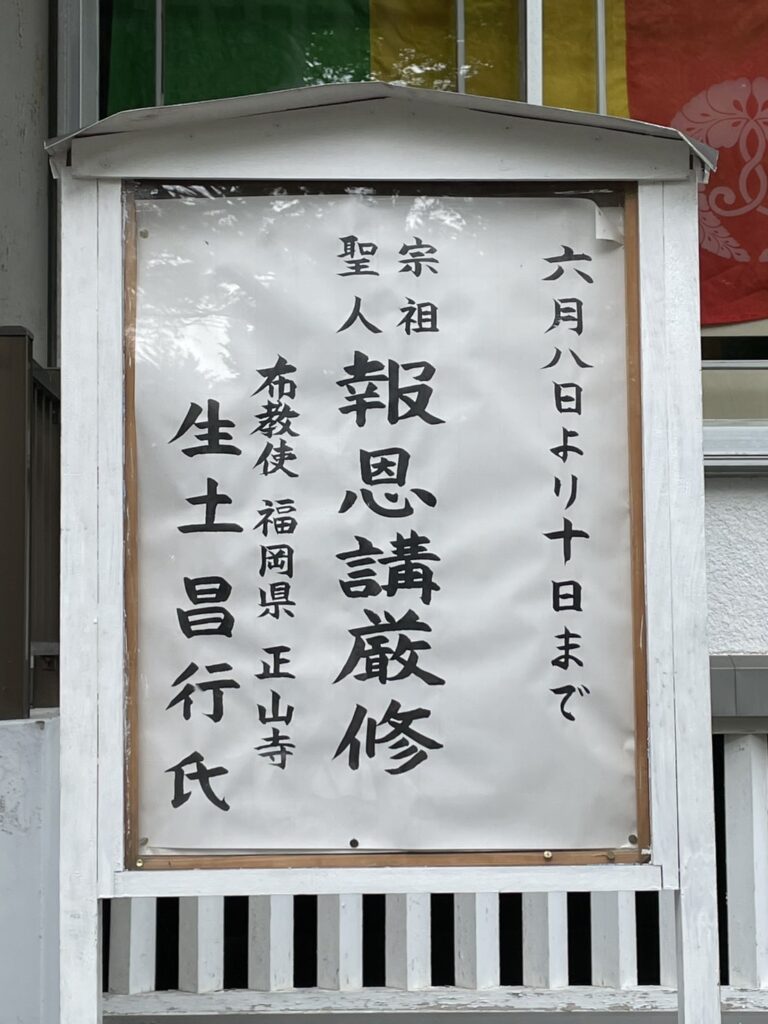 六月八日より十日まで
宗祖
聖人
報恩講厳修
布教使 福岡県 正山寺
生土昌行氏